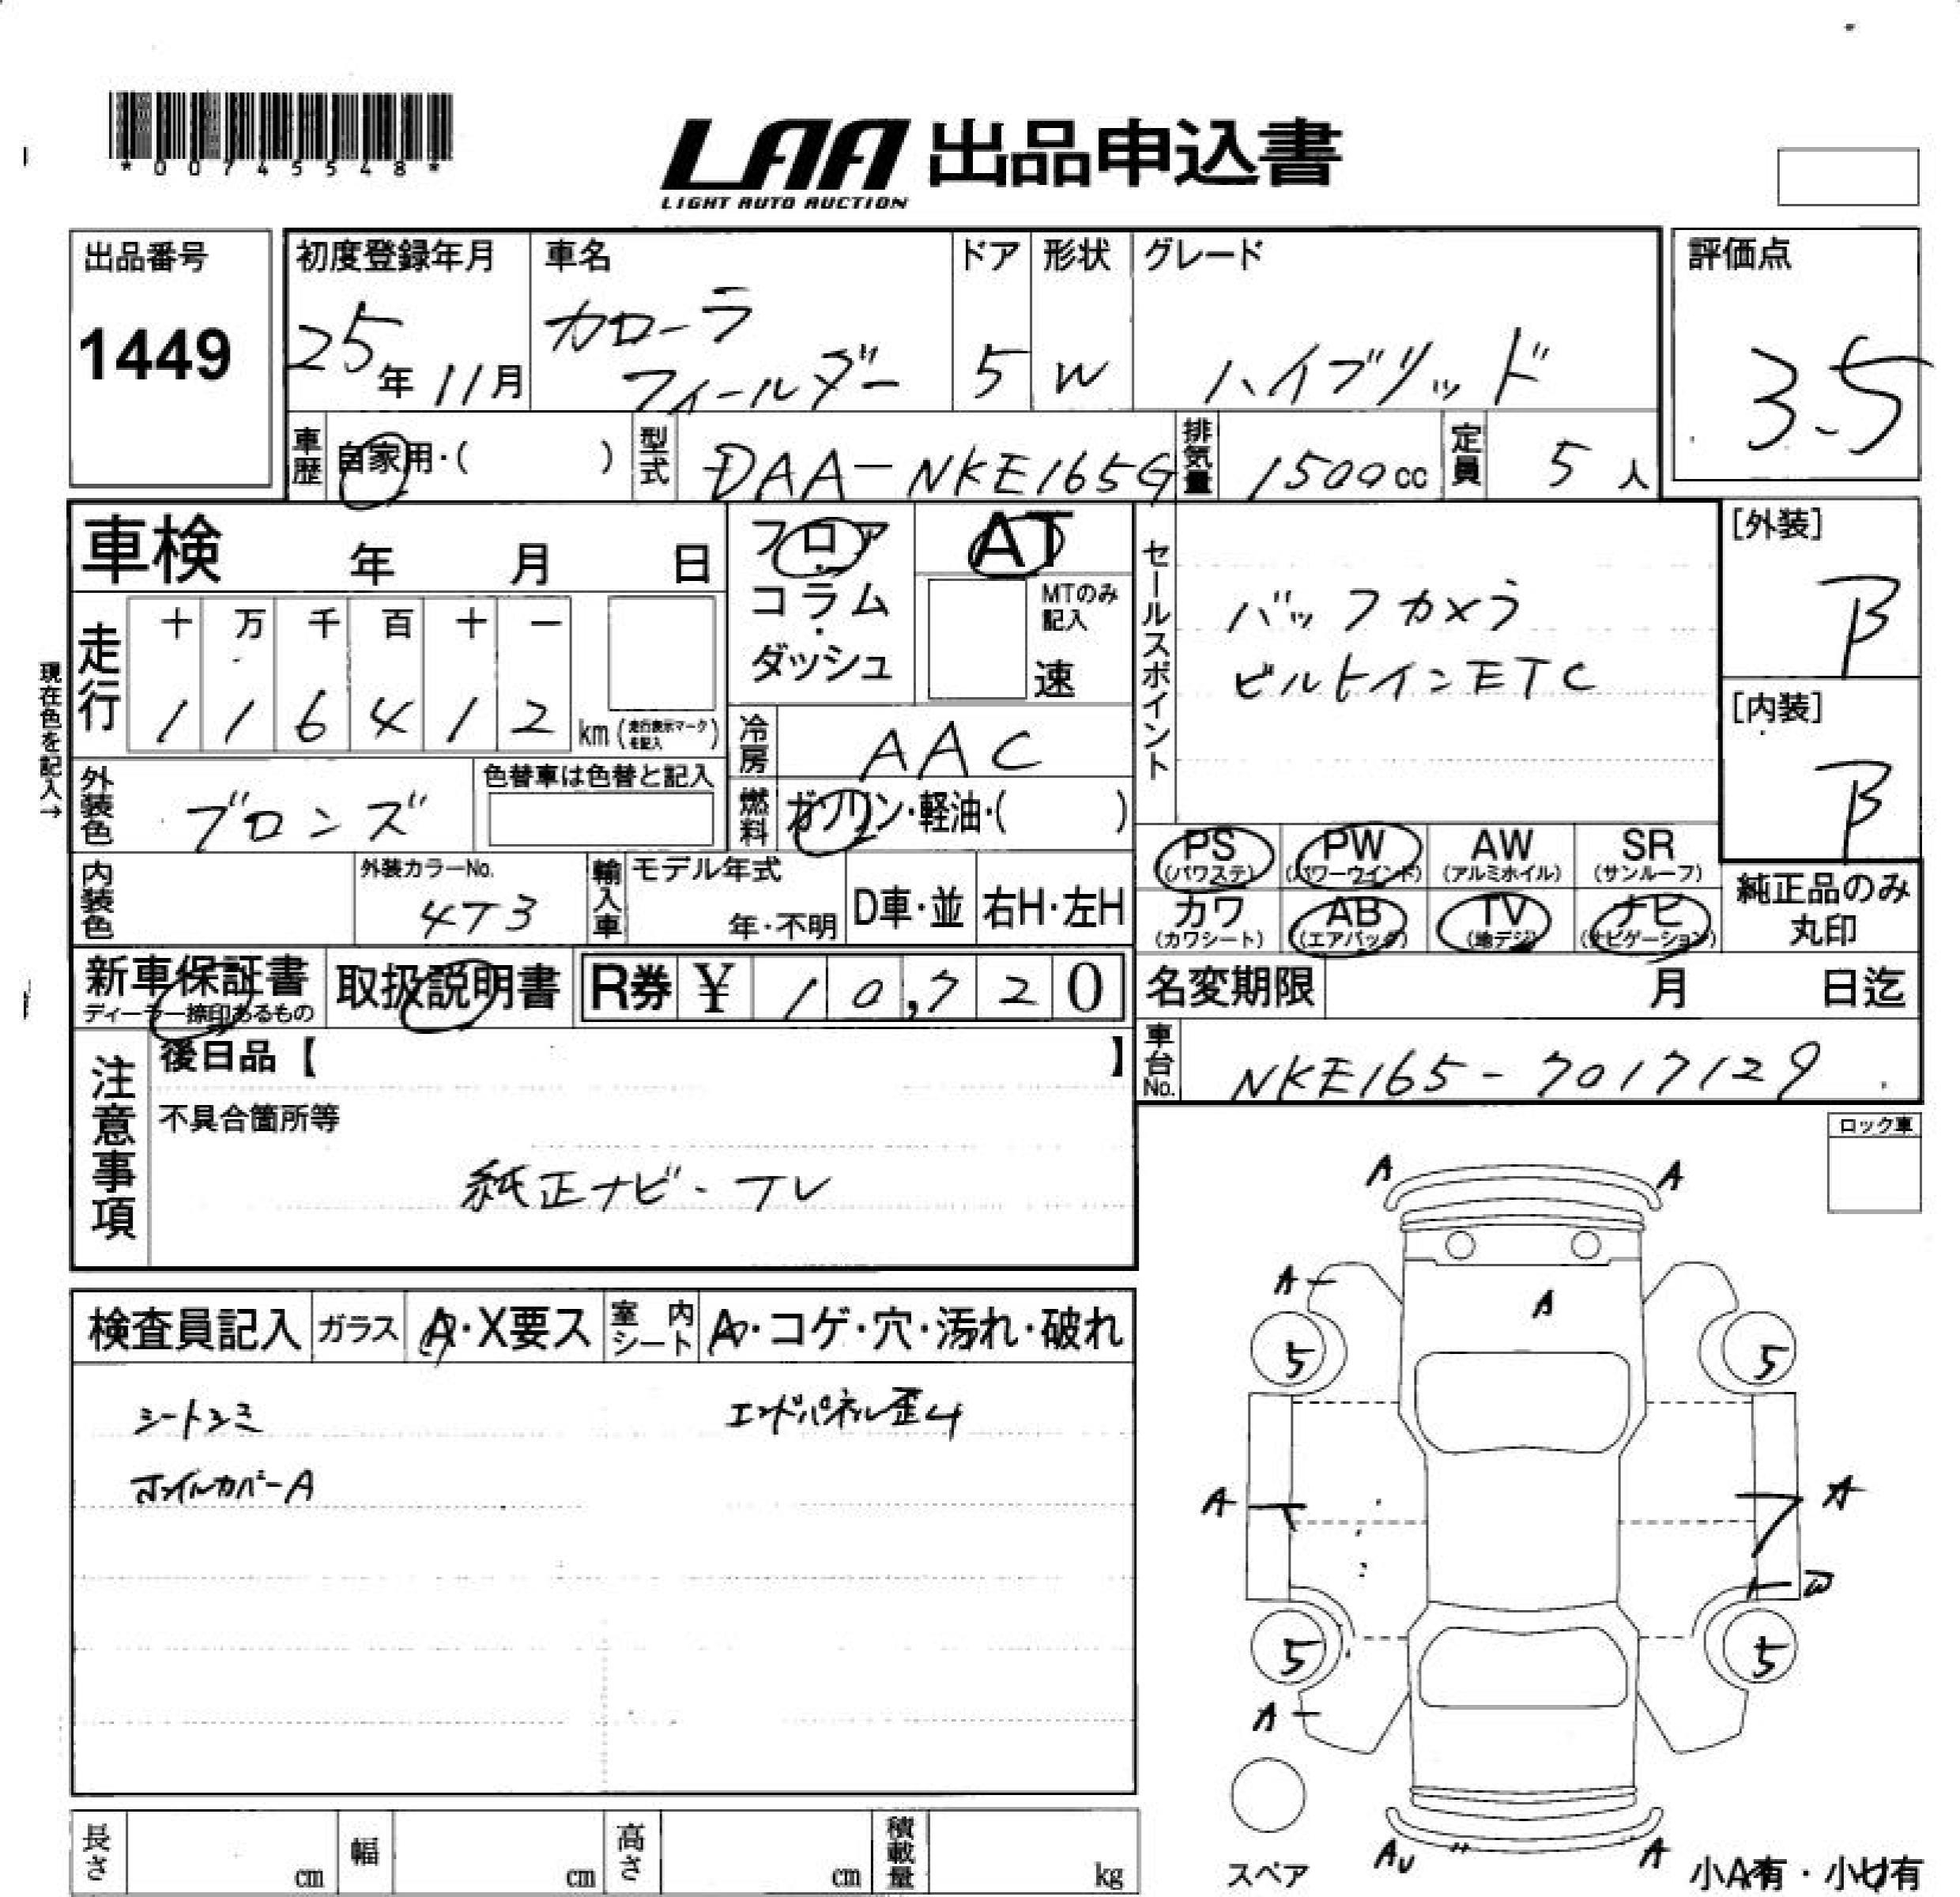 *00745548*
LAA 出品申込書
LIGHT AUTO AUCTION
出品番号
1449
初度登録年月
25年11月
車名
カローラ
フィールダー
ドア
5
形状
W
グレード
ハイブリッド
評価点
3.5
車歴 自家用・( )
型式 DAA-NKE165G
排気量 1500cc
定員 5人
車検 年 月 日
フロア・コラム・ダッシュ
AT
MTのみ記入
速
セールスポイント
バックカメラ
ビルトインETC
[外装]
B
[内装]
B
現在色を記入→
走行
十 万 千 百 十 一
1 1 6 4 1 2 km(走行表示マークを記入)
冷房 AAC
燃料 ガソリン・軽油・( )
外装色 ブロンズ
色替車は色替と記入
内装色
外装カラーNo.
4T3
輸入車
モデル年式
年・不明
D車・並
右H・左H
PS (パワステ)
PW (パワーウインド)
AW (アルミホイル)
SR (サンルーフ)
カワ (カワシート)
AB (エアバック)
TV (地デジ)
ナビ (ナビゲーション)
純正品のみ丸印
新車保証書
ディーラー捺印あるもの
取扱説明書
R券 ¥ 10,720
名変期限 月 日迄
車台No. NKE165-7017129
注意事項
後日品【 】
不具合箇所等
純正ナビ・TV
ロック車
検査員記入
ガラス A・X要ス
室内シート A・コゲ・穴・汚れ・破れ
シートシミ
エンドパネル歪4
ホイルカバーA
A A
A
A
5 5
A A
W
5 5
A
スペア
AU 〃 A
小A有・小U有
長さ cm
幅 cm
高さ cm
積載量 kg